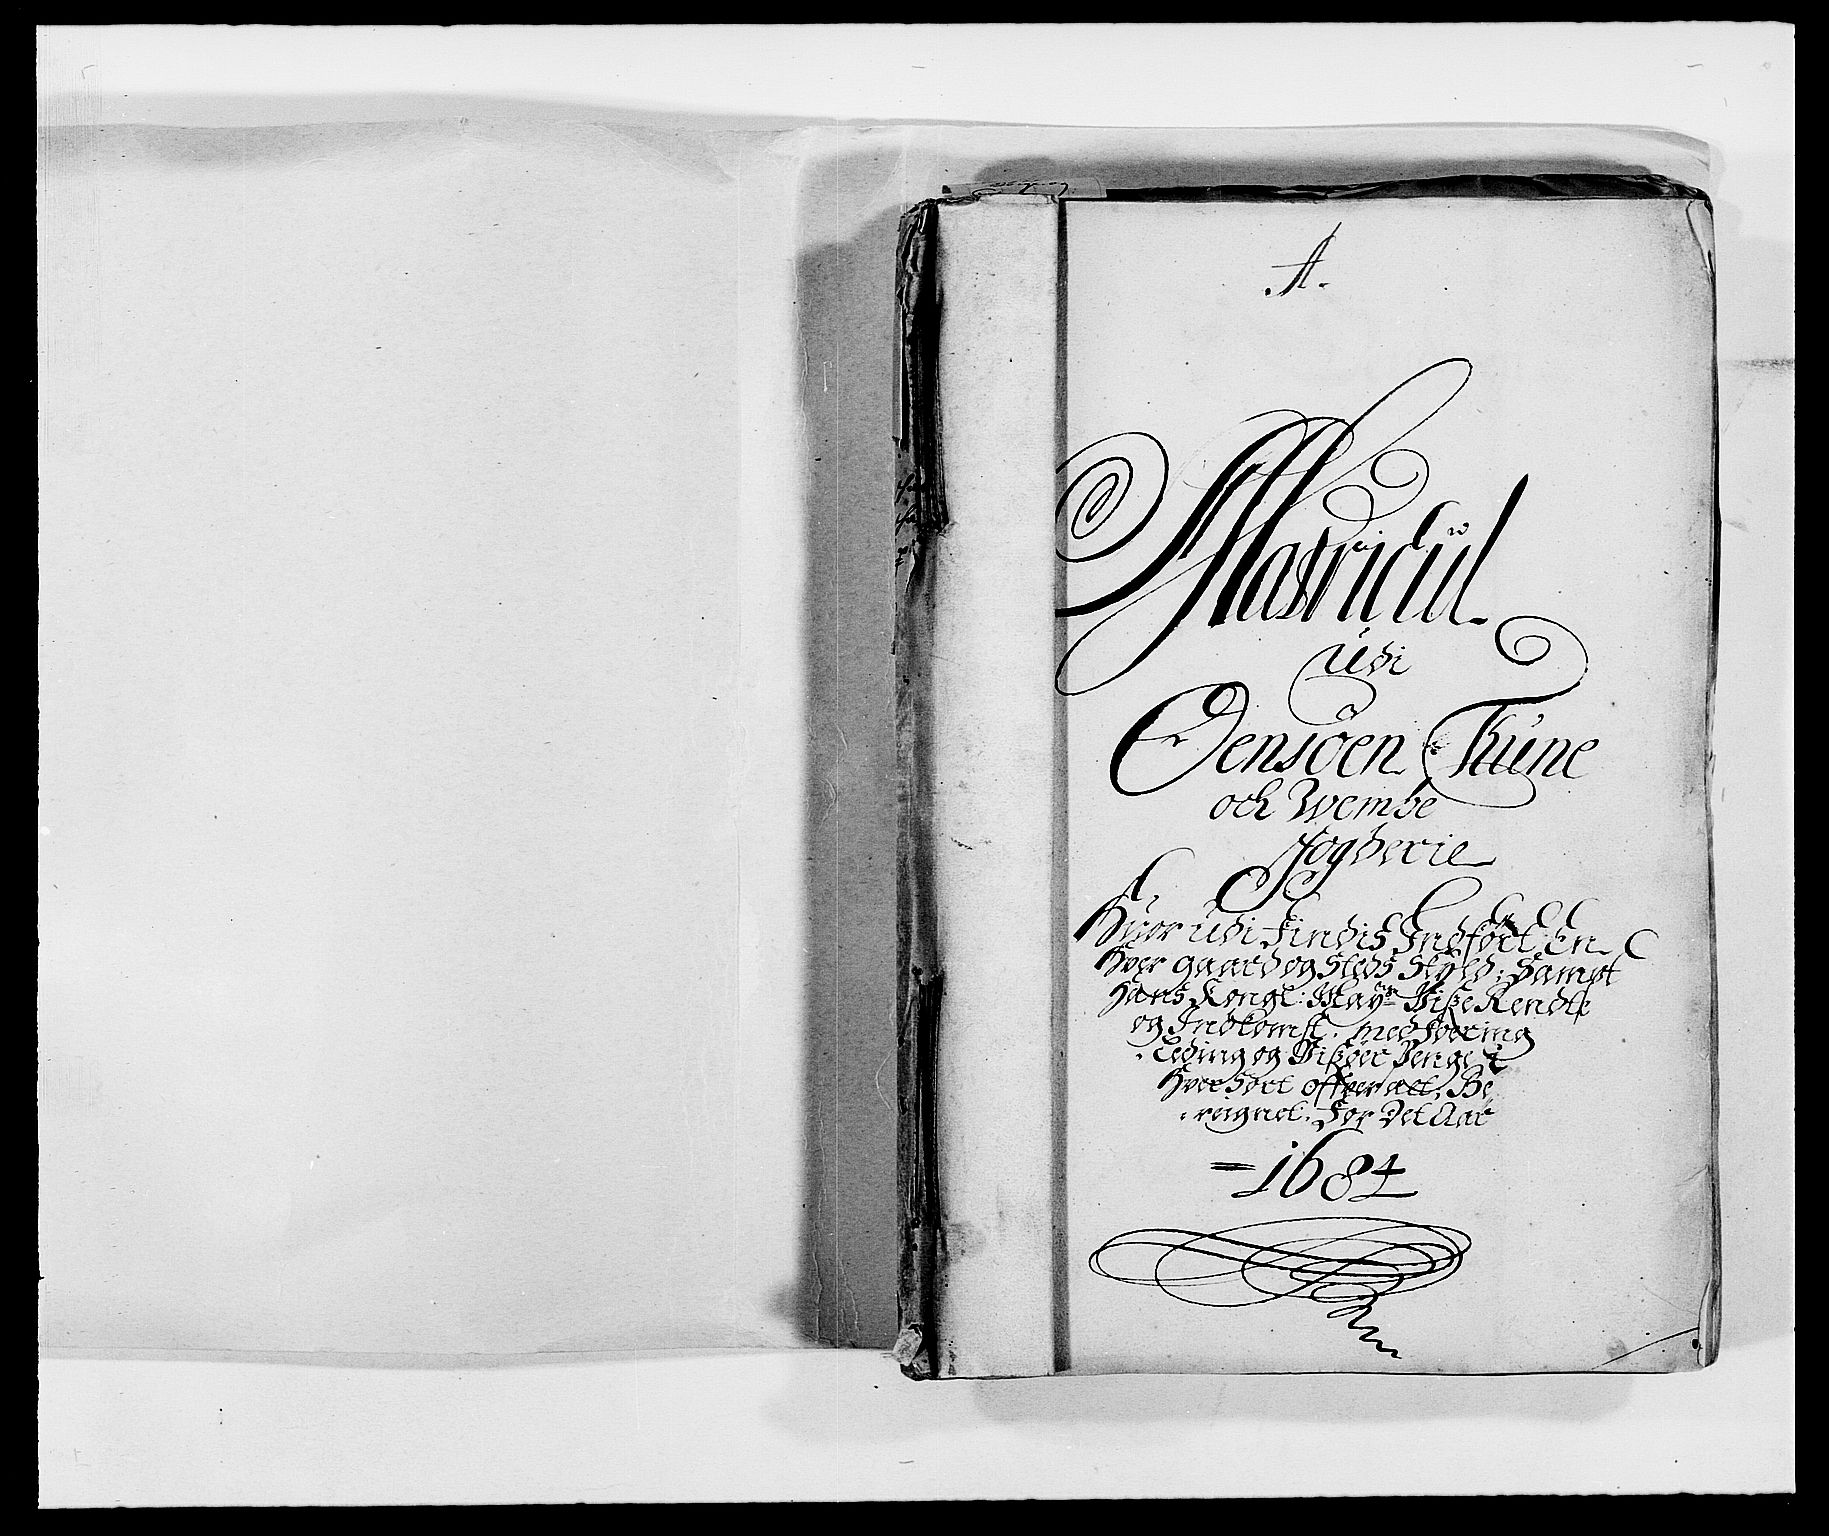 A.
Matricul
udi
Oensøen Tune
och Wembe
fogderie
Huor udi Findis Indført En
hver gaard og Steds Skyld, Sampt
Hans Kongl: Mayts Viße Rendte
og Indkomst, med foering
Leding og Vißøer Penge
hver sort offver alt, Be
reignet. For Det Aar
1684